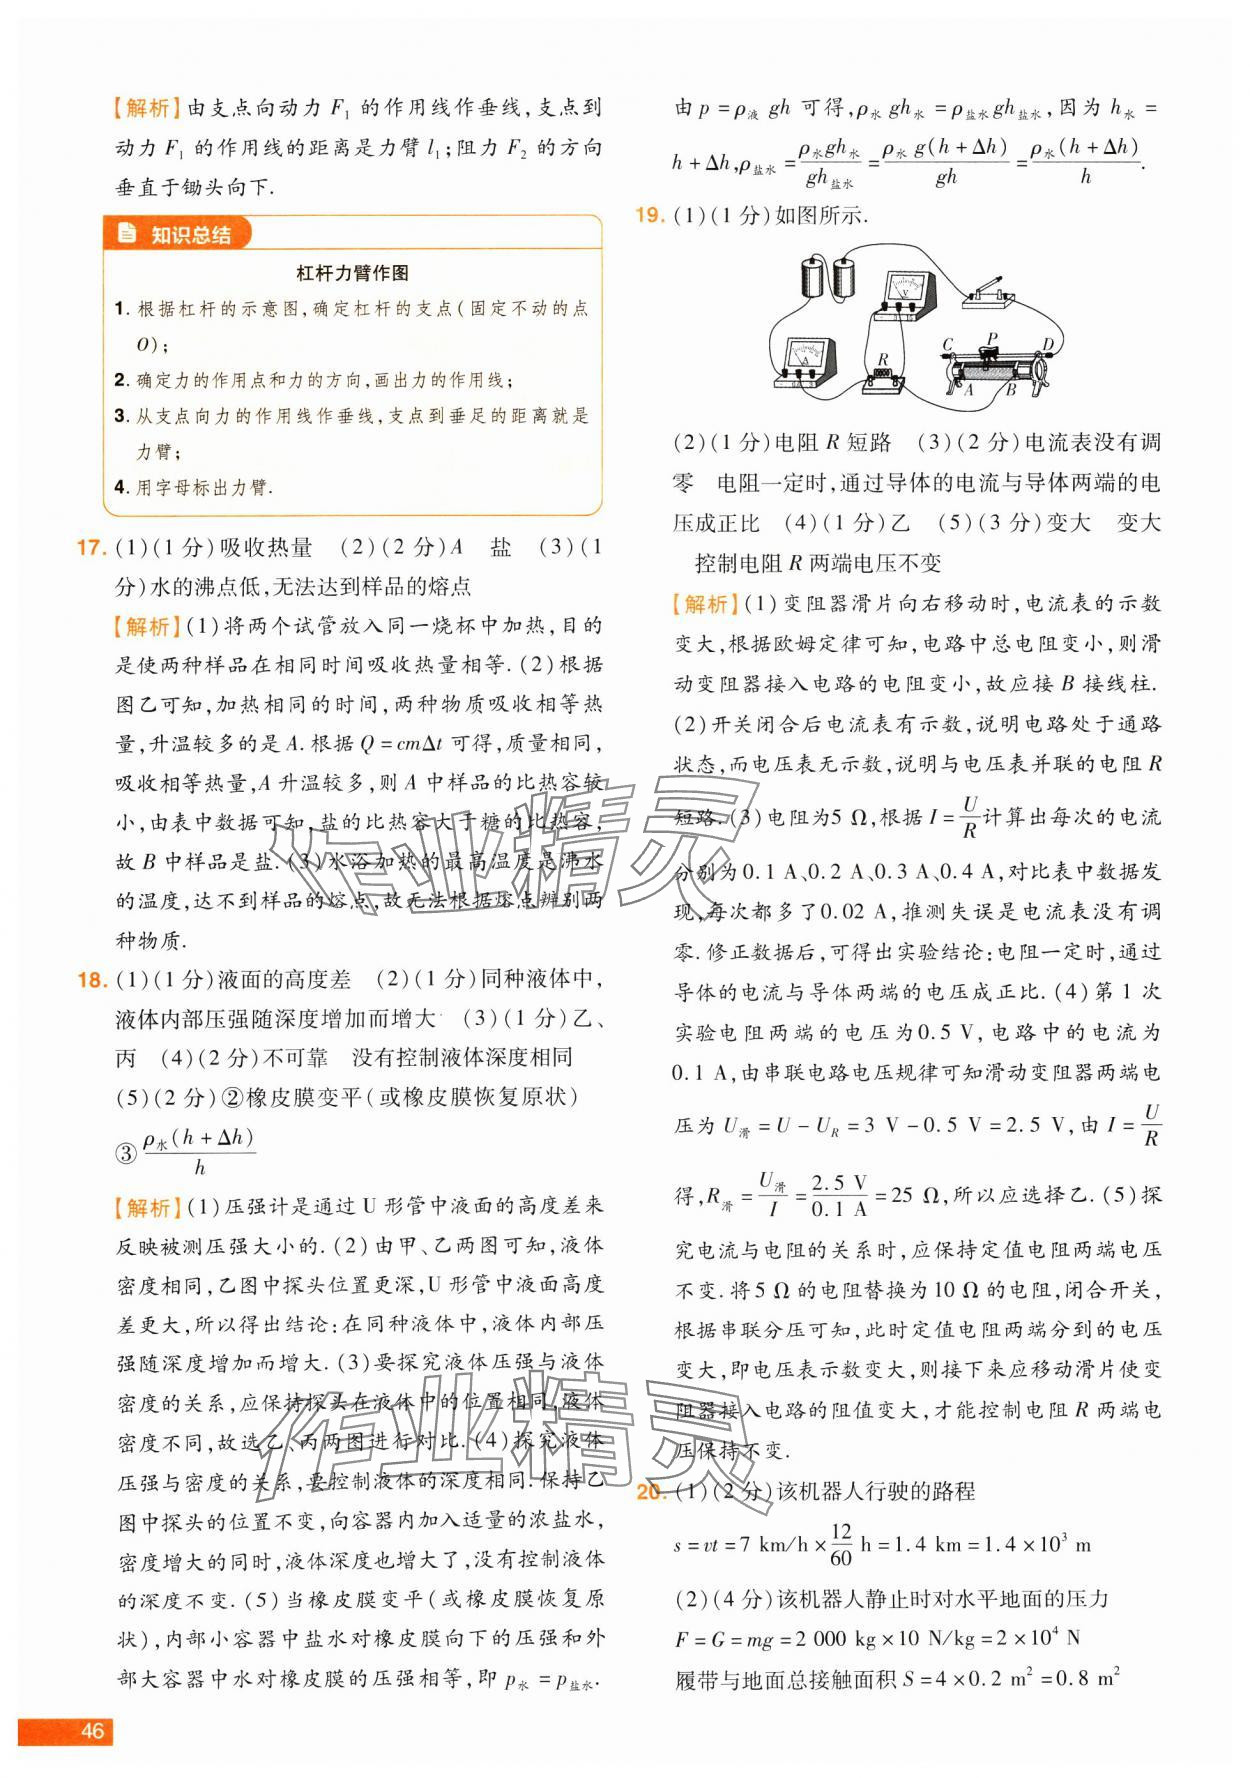 【解析】由支点向动力 F₁ 的作用线作垂线,支点到
动力 F₁ 的作用线的距离是力臂 l₁;阻力 F₂ 的方向
垂直于锄头向下.
知识总结
杠杆力臂作图
1. 根据杠杆的示意图,确定杠杆的支点(固定不动的点
O);
2. 确定力的作用点和力的方向,画出力的作用线;
3. 从支点向力的作用线作垂线,支点到垂足的距离就是
力臂;
4. 用字母标出力臂.
17. (1)(1 分)吸收热量 (2)(2 分)A 盐 (3)(1
分)水的沸点低,无法达到样品的熔点
【解析】(1)将两个试管放入同一烧杯中加热,目的
是使两种样品在相同时间吸收热量相等. (2)根据
图乙可知,加热相同的时间,两种物质吸收相等热
量,升温较多的是 A. 根据 Q = cmΔt 可得,质量相同,
吸收相等热量,A 升温较多,则 A 中样品的比热容较
小,由表中数据可知,盐的比热容大于糖的比热容,
故 B 中样品是盐. (3)水浴加热的最高温度是沸水
的温度,达不到样品的熔点,故无法根据熔点辨别两
种物质.
18. (1)(1 分)液面的高度差 (2)(1 分)同种液体中,
液体内部压强随深度增加而增大 (3)(1 分)乙、
丙 (4)(2 分)不可靠 没有控制液体深度相同
(5)(2 分)②橡皮膜变平(或橡皮膜恢复原状)
③ ρ水(h + Δh)/h
【解析】(1)压强计是通过 U 形管中液面的高度差来
反映被测压强大小的. (2)由甲、乙两图可知,液体
密度相同,乙图中探头位置更深,U 形管中液面高度
差更大,所以得出结论:在同种液体中,液体内部压
强随深度增加而增大. (3)要探究液体压强与液体
密度的关系,应保持探头在液体中的位置相同,液体
密度不同,故选乙、丙两图进行对比. (4)探究液体
压强与密度的关系,要控制液体的深度相同. 保持乙
图中探头的位置不变,向容器内加入适量的浓盐水,
密度增大的同时,液体深度也增大了,没有控制液体
的深度不变. (5)当橡皮膜变平(或橡皮膜恢复原
状),内部小容器中盐水对橡皮膜向下的压强和外
部大容器中水对橡皮膜的压强相等,即 p水 = p盐水.
由 p = ρ液 gh 可得,ρ水 gh水 = ρ盐水gh盐水,因为 h水 =
h + Δh,ρ盐水 = ρ水gh水/gh盐水 = ρ水 g(h + Δh)/gh = ρ水(h + Δh)/h.
19. (1)(1 分)如图所示.
V
A
R
C P D
A B
(2)(1 分)电阻 R 短路 (3)(2 分)电流表没有调
零 电阻一定时,通过导体的电流与导体两端的电
压成正比 (4)(1 分)乙 (5)(3 分)变大 变大
控制电阻 R 两端电压不变
【解析】(1)变阻器滑片向右移动时,电流表的示数
变大,根据欧姆定律可知,电路中总电阻变小,则滑
动变阻器接入电路的电阻变小,故应接 B 接线柱.
(2)开关闭合后电流表有示数,说明电路处于通路
状态,而电压表无示数,说明与电压表并联的电阻 R
短路. (3)电阻为5 Ω,根据 I = U/R 计算出每次的电流
分别为0.1 A、0.2 A、0.3 A、0.4 A,对比表中数据发
现,每次都多了0.02 A,推测失误是电流表没有调
零. 修正数据后,可得出实验结论:电阻一定时,通过
导体的电流与导体两端的电压成正比. (4)第 1 次
实验电阻两端的电压为0.5 V,电路中的电流为
0.1 A,由串联电路电压规律可知滑动变阻器两端电
压为 U滑 = U − U_R = 3 V − 0.5 V = 2.5 V,由 I = U/R
得,R滑 = U滑/I = 2.5 V/0.1 A = 25 Ω,所以应选择乙. (5)探
究电流与电阻的关系时,应保持定值电阻两端电压
不变. 将5 Ω 的电阻替换为 10 Ω 的电阻,闭合开关,
根据串联分压可知,此时定值电阻两端分到的电压
变大,即电压表示数变大,则接下来应移动滑片使变
阻器接入电路的阻值变大,才能控制电阻 R 两端电
压保持不变.
20. (1)(2 分)该机器人行驶的路程
s = vt = 7 km/h × 12/60 h = 1.4 km = 1.4 × 10³ m
(2)(4 分)该机器人静止时对水平地面的压力
F = G = mg = 2 000 kg × 10 N/kg = 2 × 10⁴ N
履带与地面总接触面积 S = 4 × 0.2 m² = 0.8 m²
46
作业精灵
作业精灵